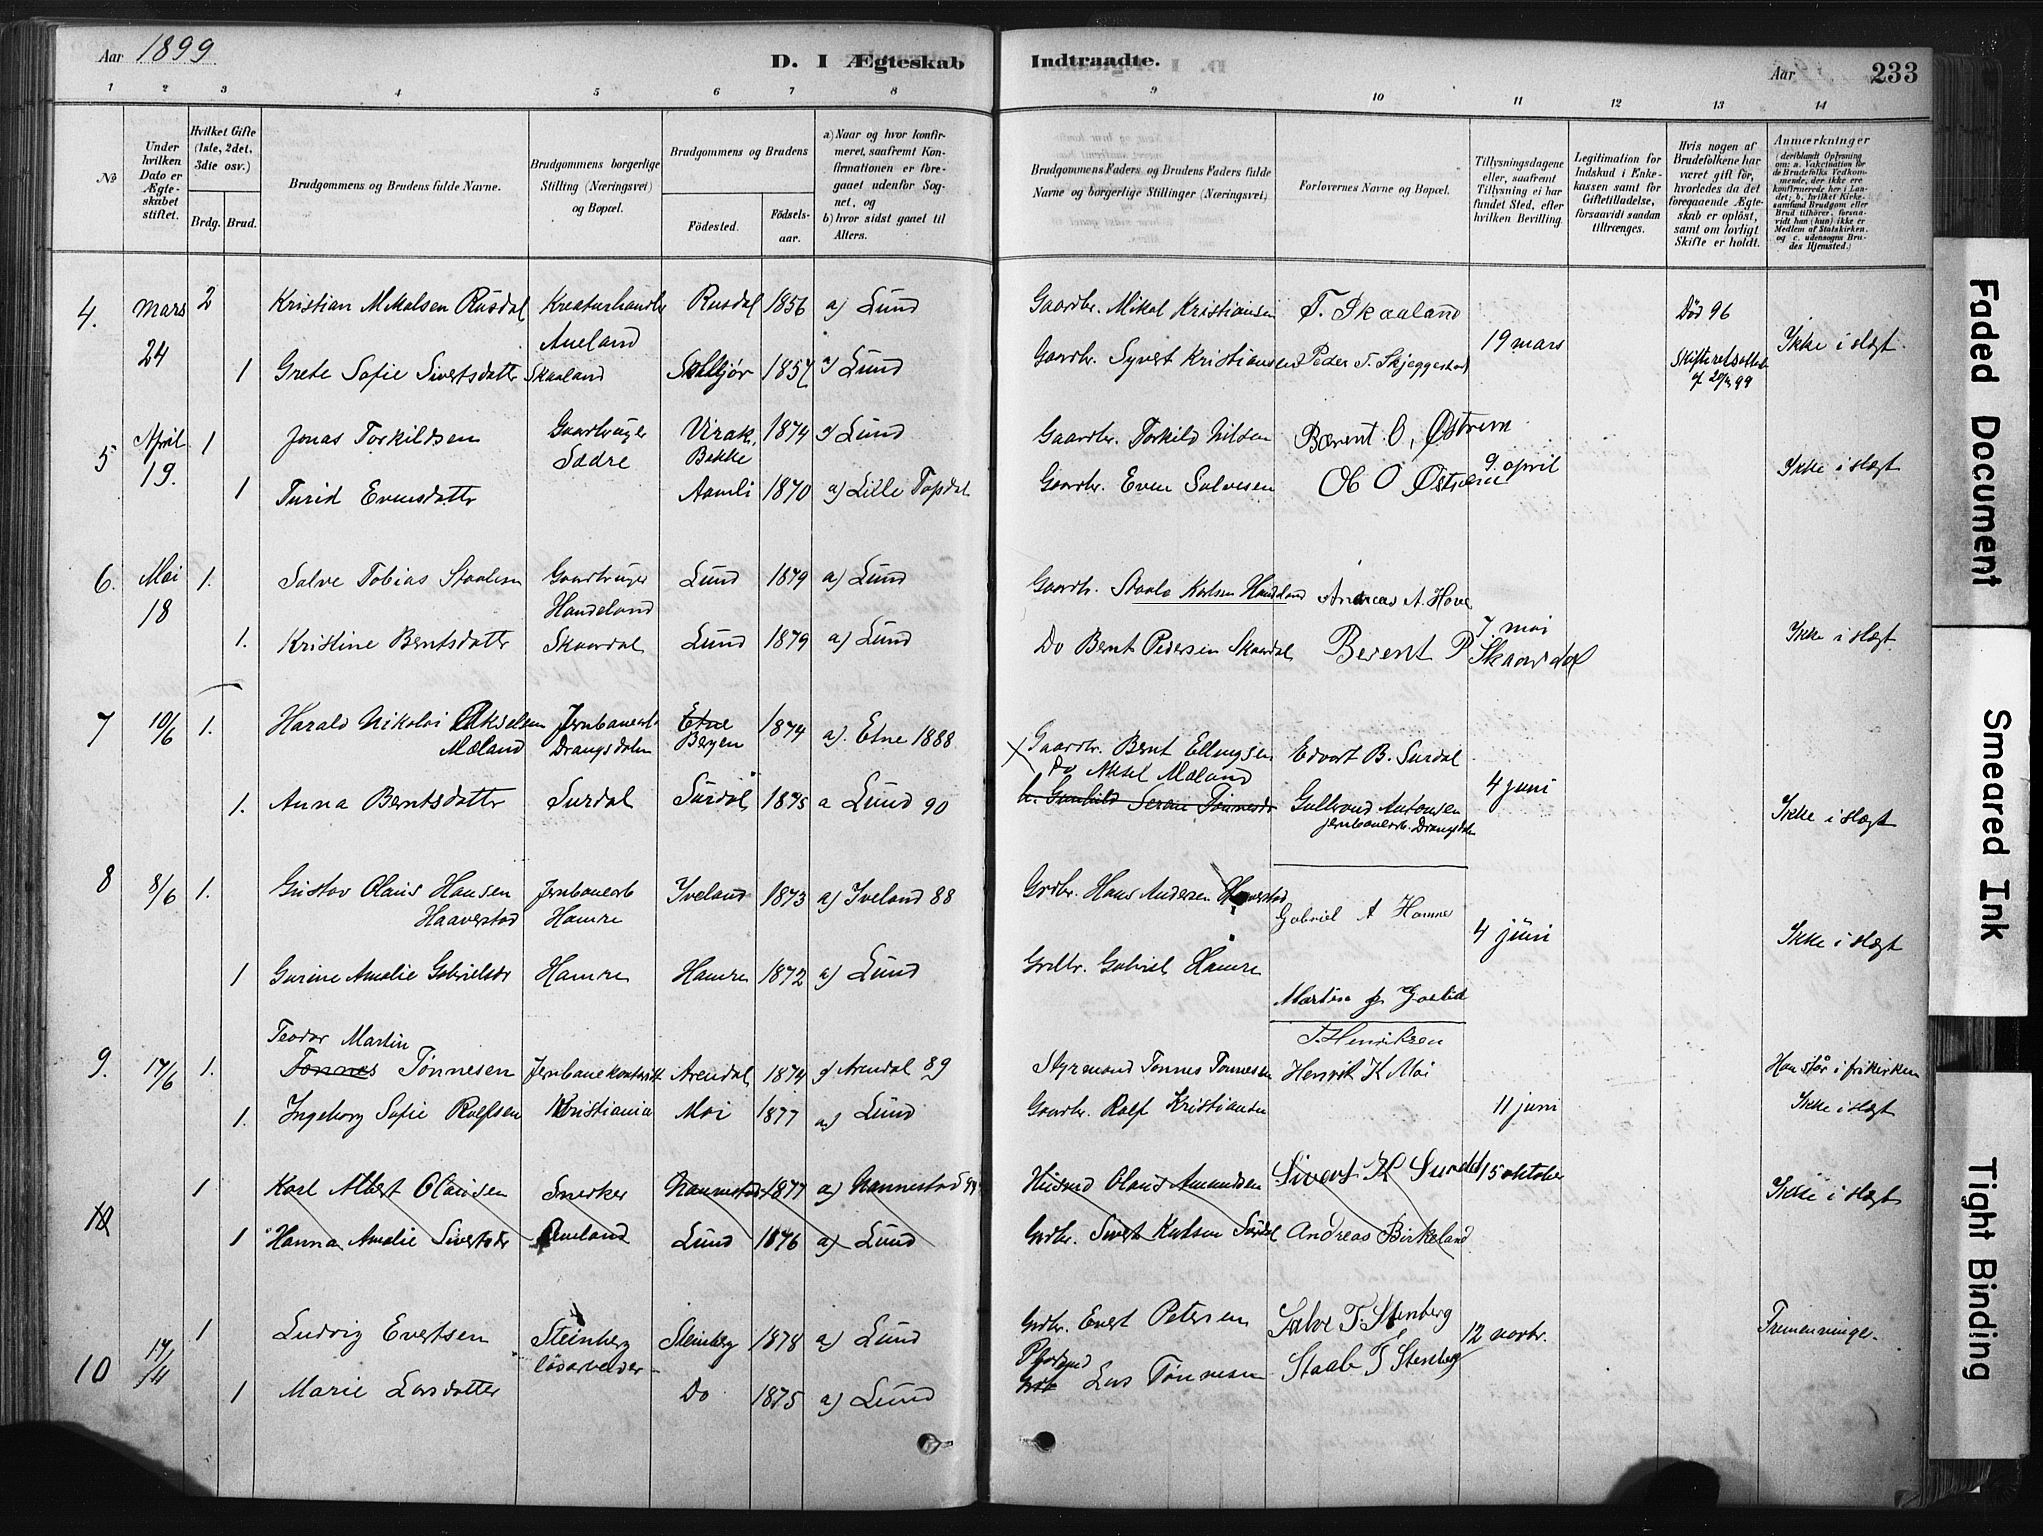 Aar 1899
D. I Ægteskab
Indtraadte.
Aar 233
1 2 3 4 5 6 7 8 9 10 11 12 13 14
No
Under hvilken Dato er Ægteskabet stiftet.
Hvilket Gifte (1ste, 2det, 3die osv.)
Brdg. Brud.
Brudgommens og Brudens fulde Navne.
Brudgommens borgerlige Stilling (Næringsvei) og Bopæl.
Brudgommens og Brudens
Fødested.
Fødselsaar.
a) Naar og hvor konfirmeret, saafremt Konfirmationen er foregaaet udenfor Sognet, og
b) hvor sidst gaaet til Alters.
Brudgommens Faders og Brudens Faders fulde Navne og borgerlige Stillinger (Næringsvei)
Forlovernes Navne og Bopæl.
Tillysningsdagene eller, saafremt Tillysning ei har fundet Sted, efter hvilken Bevilling.
Legitimation for Indskud i Enkekassen samt for Giftetilladelse, forsaavidt saadan tiltrænges.
Hvis nogen af Brudefolkene har været gift før, hvorledes da det foregaaende Ægteskab er opløst, samt om lovligt Skifte er holdt.
Anmærkninger (deriblandt Oplysning om: a. Vakcination for de Brudefolks Vedkommende, der ikke ere konfirmerede her i Landet; b. hvilket Kirkesamfund Brudgom eller Brud tilhører, forsaavidt han (hun) ikke er Medlem af Statskirken, og c. udensogns Brudes Hjemsted.)
4. Mars 24 2 Kristian Mikalsen Rusdal Kreaturhandler Aueland Rusdal 1856 a) Lund Gaardbr. Mikal Kristiansen T. Skaaland 19 mars Død 96 Ikke i slægt
1 Grete Sofie Sivertsdatter Skaaland 1857 Lund Gaardbr. Syvert Kristiansen Peder T. Skjeggestad
5 April 19. 1 Jonas Torkildsen Gaardbruger Sædre Virak, Bakke 1874 Lund Gaardbr. Torkild Nilsen Berent O, Østrem 9. april Ikke i slægt
1 Turid Evensdatter Aamli 1870 a) Lille Topdal Gaardbr. Even Salvesen O O Østrem
6. Mai 18 1. Salve Tobias Staalesen Gaardbruger Handeland Lund 1879 a) Lund Gaardbr. Staale Karlsen Handeland Andreas A. Hove 7. mai Ikke i slægt
1. Kristine Berntsdatter Skaardal Lund 1879 a) Lund Do Bernt Pedersen Skaardal Berent P Skaardal
7 10/6 1. Harald Nikolai Akselsen Mæland Jernbanearb Drangsdalen Etne Bergen 1874 a). Etne 1888 Gaardbr. Bernt Ellingsen Do Aksel Mæland Edvart B. Surdal 4 juni
1. Anna Berntsdatter Surdal Surdal 1875 a Lund 90 Gunhild Serine Tønnesdr Gullrand Antonsen jernbanearb. Drangsdalen Ikke i slægt
8 8/6 1. Gustav Olaus Hansen Haaverstad Jernbanearb Hamre Iveland 1873 a) Iveland 88 Grdbr. Hans Andersen Haaverstad Gabriel A Hamre 4 juni Ikke i slægt
1 Gurine Amalie Gabrielsdr Hamre Hamre 1872 a) Lund Grdbr. Gabriel Hamre
9. 17/6 1. Teodor Martin Tønnes Tønnesen Jernbanekontorist Arendal 1874 Arendal 89 Styrmand Tønnes Tønnesen T. Henriksen Henrik K Moi Han står i frikirken
1. Ingeborg Sofie Rolfsen Kristiania Moi 1877 a) Lund Gaardbr. Rolf Kristiansen 11 juni Ikke i slægt
10 1 Karl Albert Olausen Snerker Nannestad 1877 a) Nannestad Husmd Olaus Amundsen Sivert K Surdal 15 oktober Ikke i slægt
1 Hanna Amalie Sivertsdr Aueland Lund 1876 a) Lund Grdbr. Sivert Andreas Birkeland
10 1 Ludvig Evertsen Steinberg Løsarbeider Steinberg 1878 a) Lund Grdbr. Evert Petersen Salve T. Stenberg 12 novbr. Tremenninge.
1 Marie Larsdatter Do 1875 a) Lund Lars Tønnesen Staale T Stenberg
Faded Document
Smeared Ink
Tight Binding